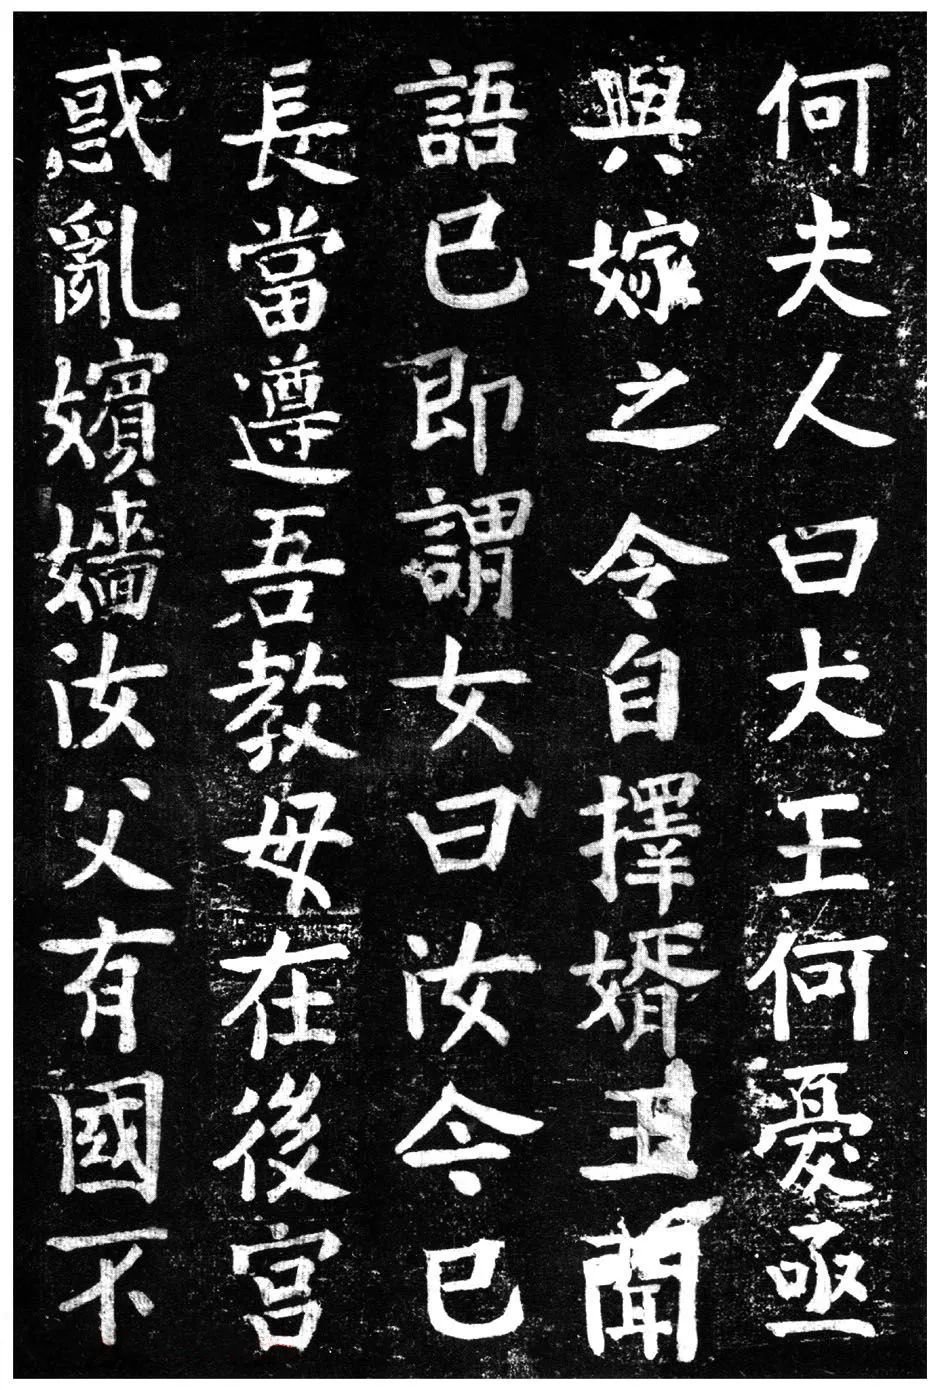 何夫人曰大王何憂亟
與嫁之令自擇婿王聞
語已即謂女曰汝今已
長當遵吾教毋在後宮
惑亂嬪嬙汝父有國不